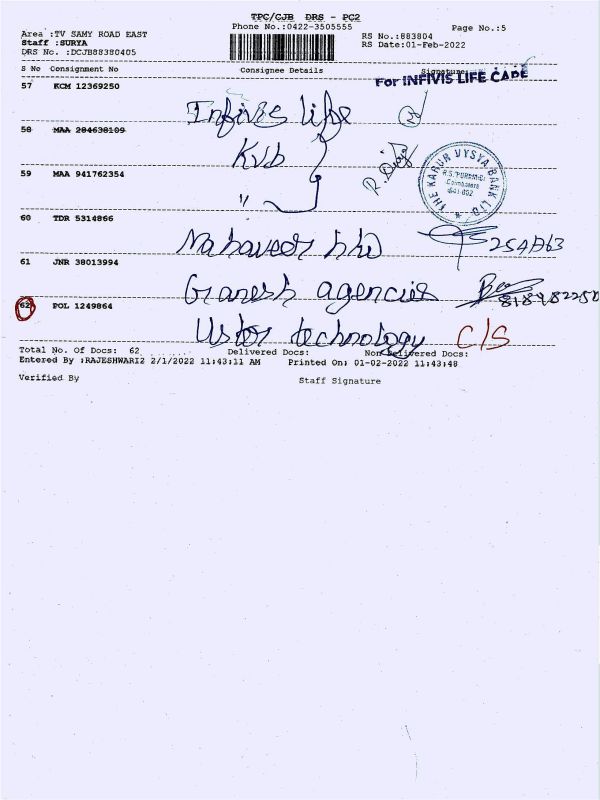 TPC/CJB DRS - PC2
Phone No.:0422-3505555
Page No.:5
Area :TV SAMY ROAD EAST
Staff :SURYA
DRS No. :DCJB88380405
RS No.:883804
RS Date:01-Feb-2022
S No Consignment No Consignee Details Signature
For INFIVIS LIFE CARE
57 KCM 12369250 Infivis life
58 MAA 284638109 Kvb
THE KARUR VYSYA BANK LTD.
Coimbatore
59 MAA 941762354 "
60 TDR 5314866
61 JNR 38013994 Ganesh agencies
62 POL 1249864 technology C/S
Total No. Of Docs: 62 Delivered Docs: Non Delivered Docs:
Entered By :RAJESHWARI2 2/1/2022 11:43:11 AM Printed On: 01-02-2022 11:43:48
Verified By Staff Signature